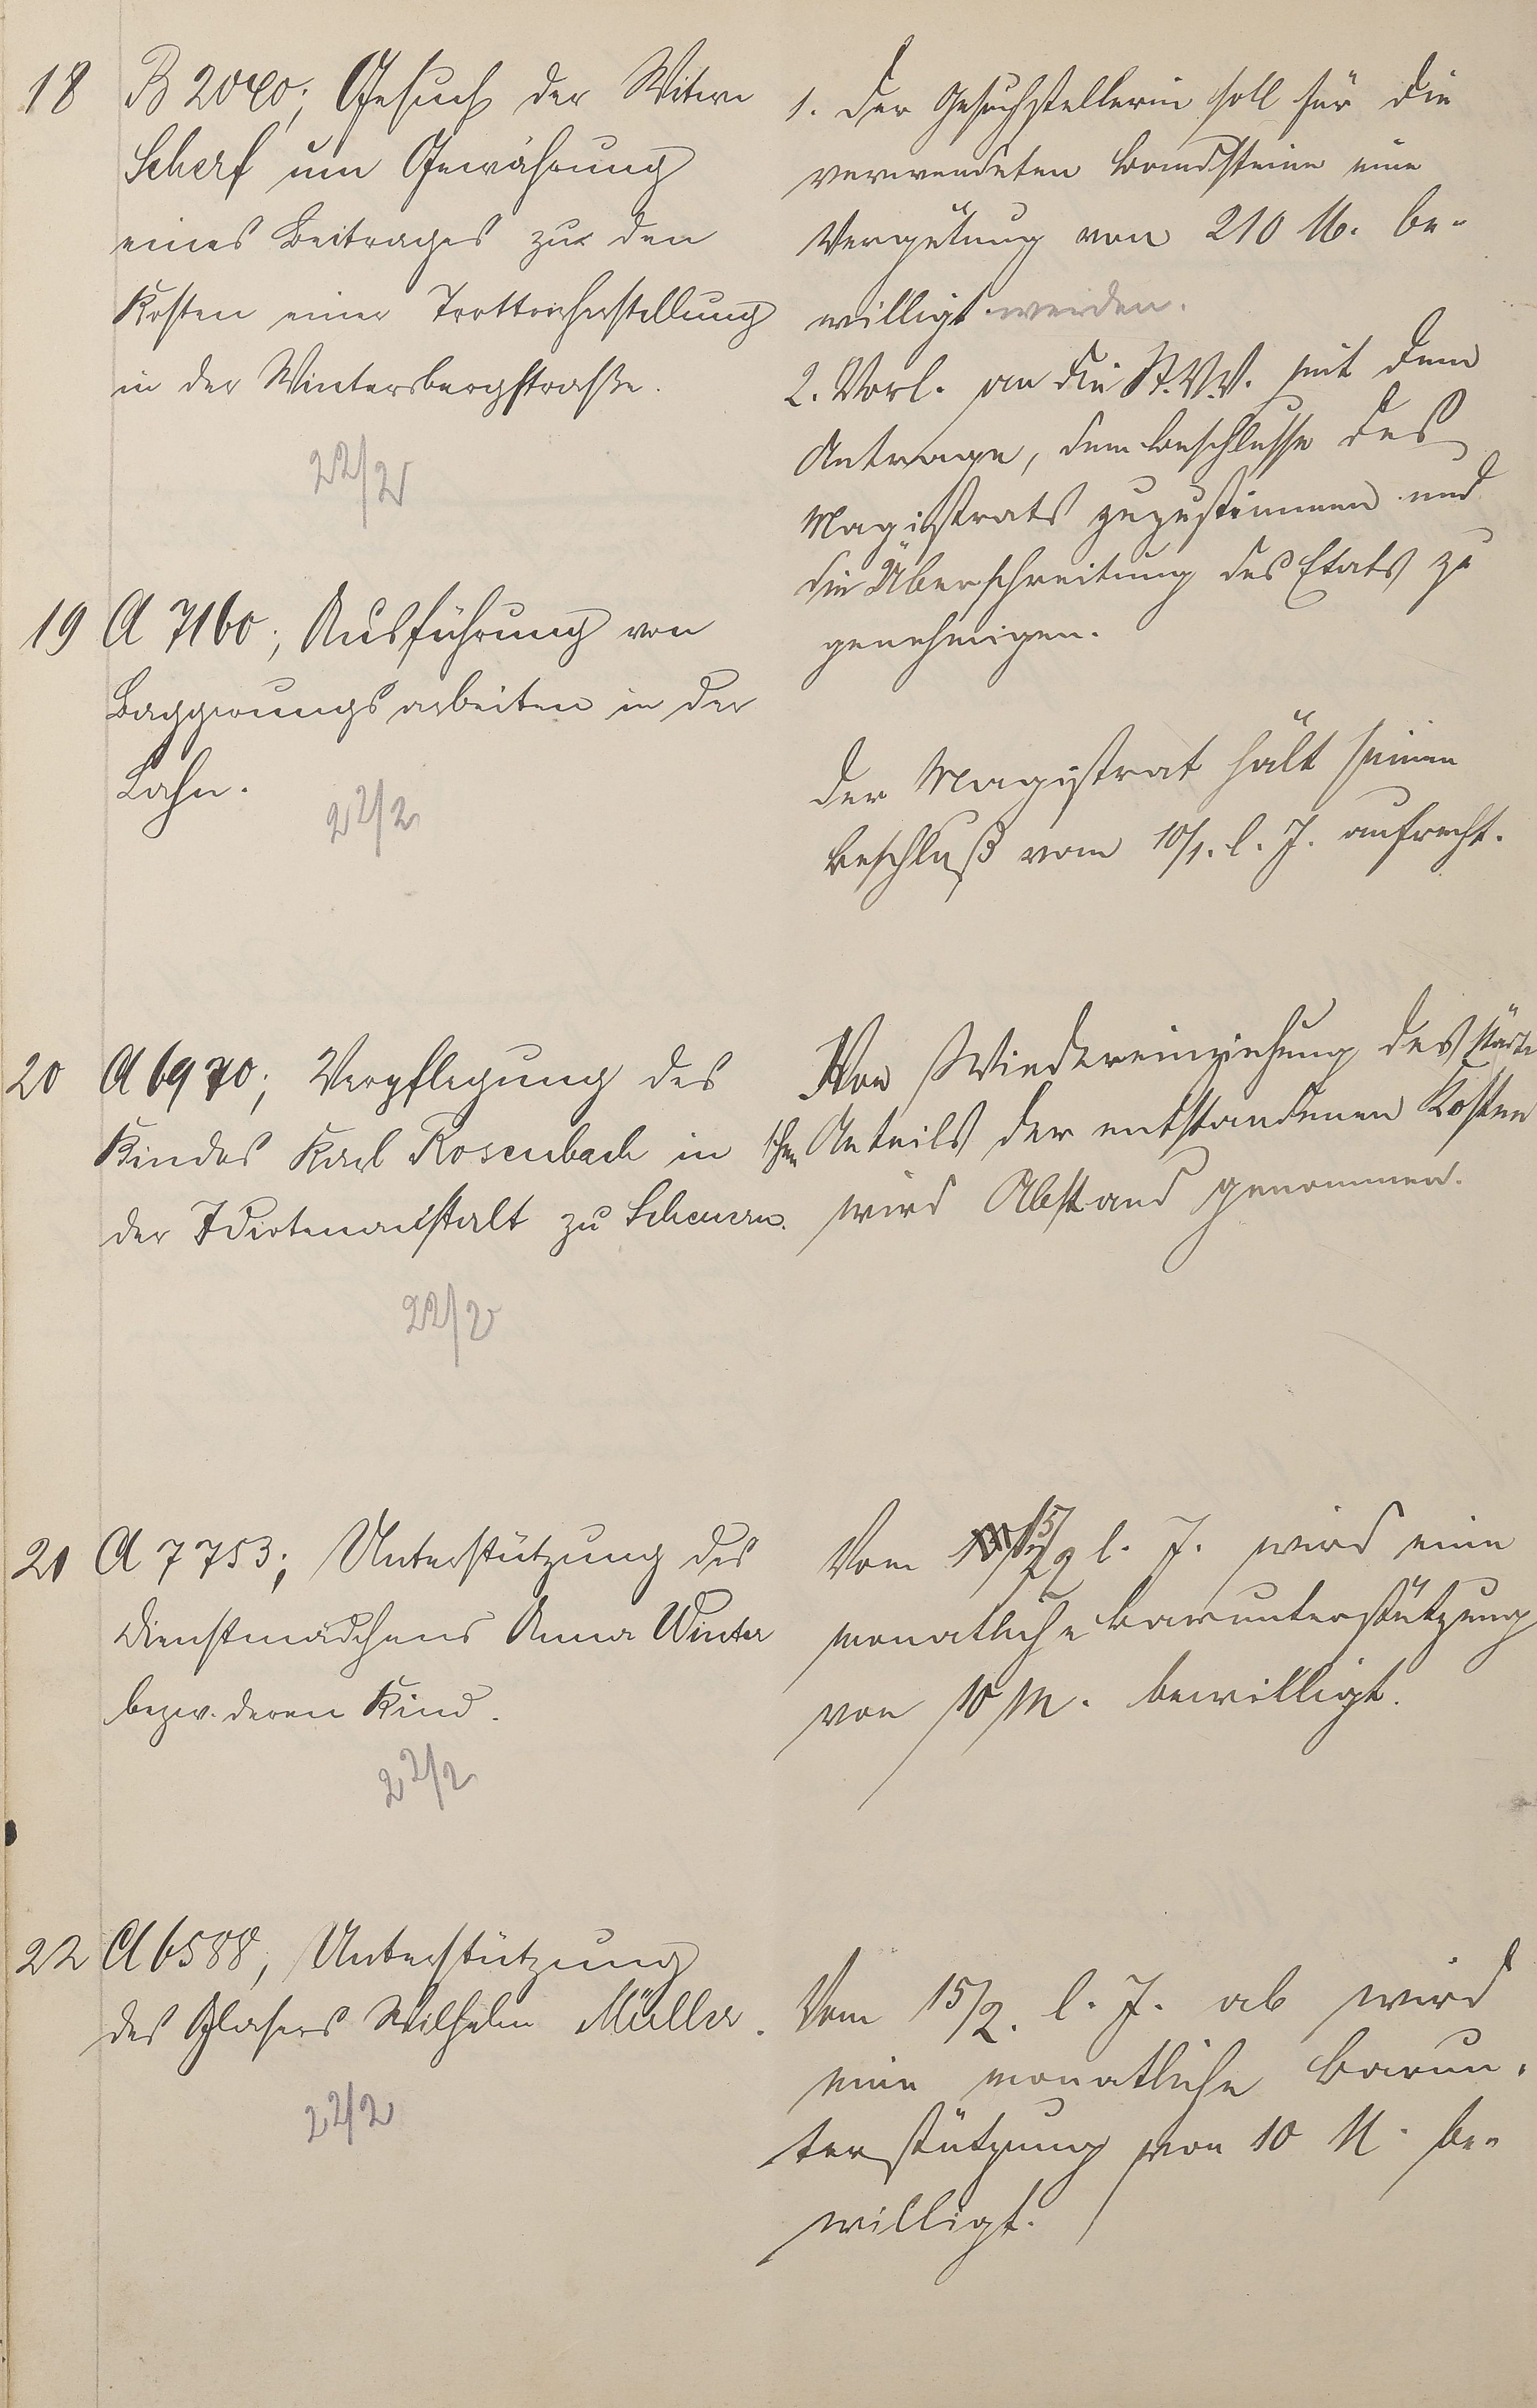 18 B 2040; Gesuch der Witwe
Scherf um Gewährung
eines Beitrages zu den
Kosten einer Trottoirherstellung
in der Wintersbergstraße.
22/2
1. Der Gesuchstellerin soll für die
verwendeten Bordsteine eine
Vergütung von 210 M. be-
willigt werden.
2. Vorl. an die St.V.V. mit dem
Antrage, dem Beschlusse des
Magistrats zuzustimmen und
die Überschreitung des Etats zu
genehmigen.
19 A 7160; Ausführung von
Baggerungsarbeiten in der
Lahn.
22/2
Der Magistrat hält seinen
Beschluß vom 10/1. l. J. aufrecht.
20 A 6970; Verpflegung des
Kindes Karl Rosenbach in
der Idiotenanstalt zu Scheuern.
22/2
Von Wiedereinziehung des städti
schen Anteils der entstandenen Kosten
wird Abstand genommen.
21 A 7753; Unterstützung des
Dienstmädchens Anna Winter
bezw. deren Kind.
22/2
Vom 15/2 l. J. wird eine
monatliche Barunterstützung
von 10 M. bewilligt.
22 A 6588, Unterstützung
des Glasers Wilhelm Müller.
22/2
Vom 15/2. l. J. ab wird
eine monatliche Barun-
terstützung von 10 M. be-
willigt.